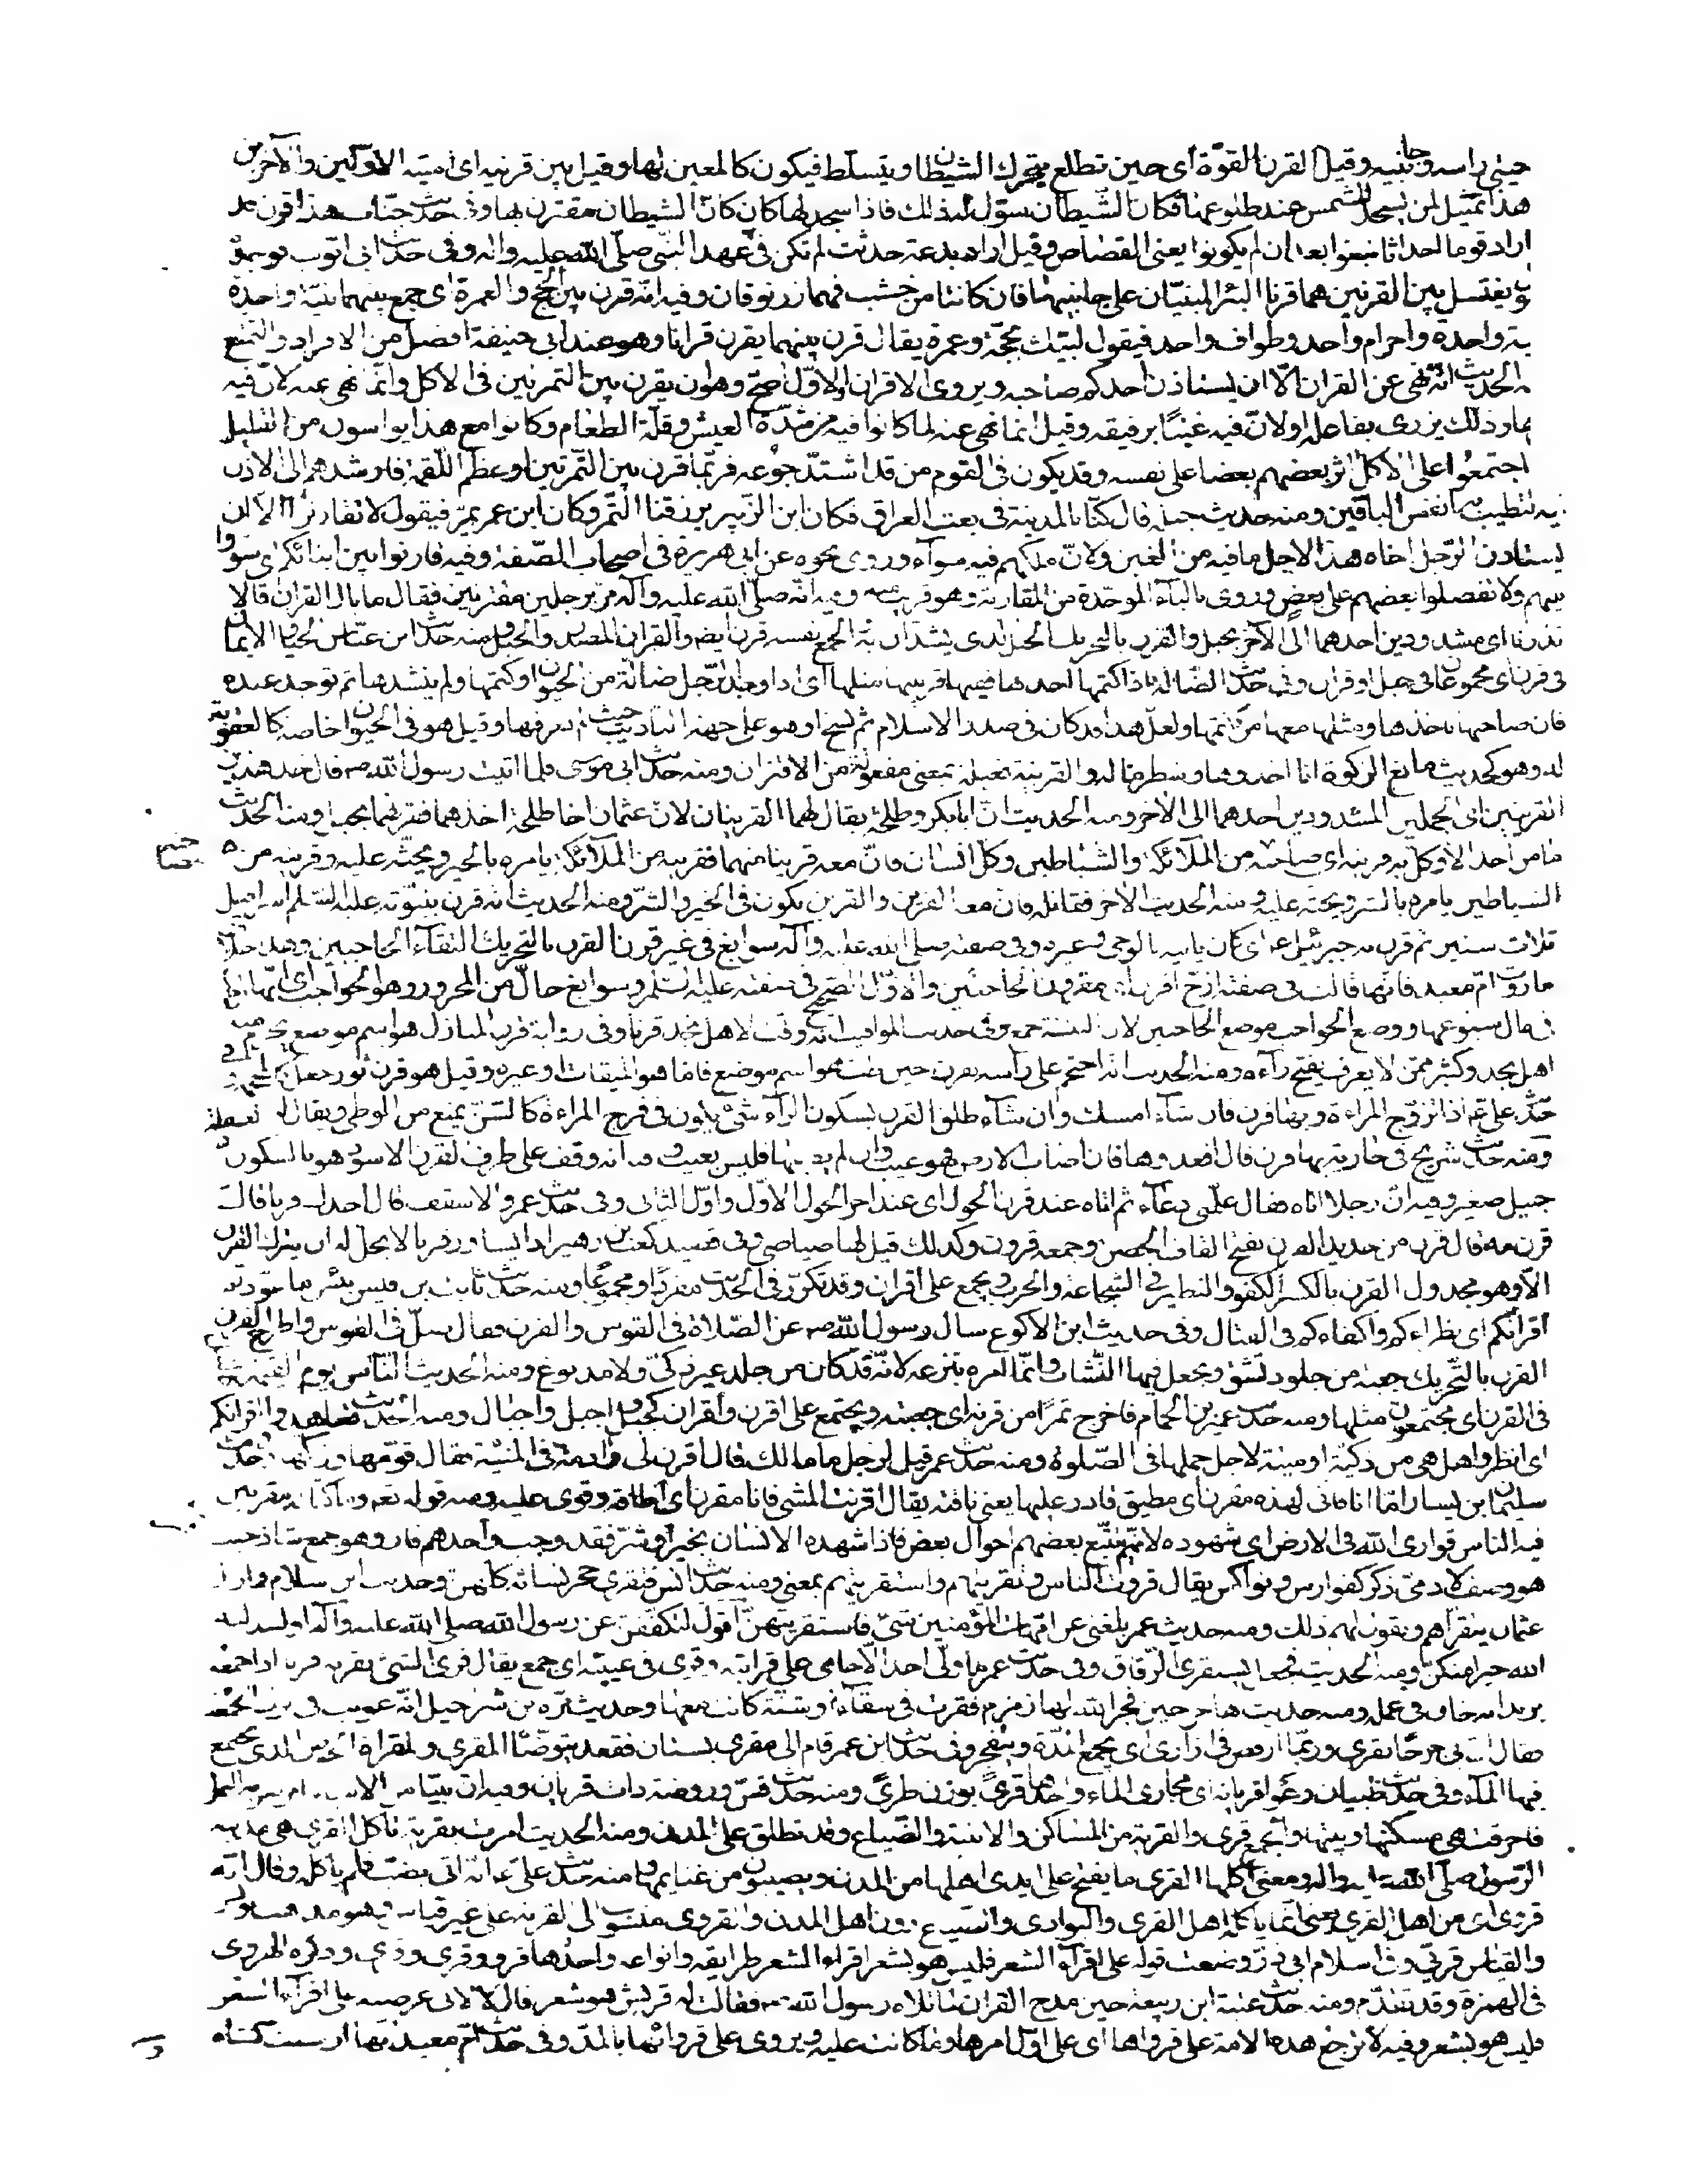 حيتى راسه وجانبيه وقيل القرن القوّة اى حين تطلع يتحرك الشيطان ويتسلط فيكون كالمعين لها وقيل بين قرنيه اى امتيه الاوّلين والآخرين
هذا تمثيل لمن يسجد للشمس عند طلوعها فكانّ الشيطان سوّل له ذلك فاذا سجد لها كان كانّ الشيطان مقترن بها وفى حديث خبّاب هذا قرن قد
اراد قوما احداثا نبغوا بعد ان لم يكونوا يعنى القصّاص وقيل اراد بدعة حدثت لم تكن فى عهد النبىّ صلّى الله عليه واله وفى حديث ابى ايّوب
يغتسل بين القرنين هما قرنا البئر المبنيّان على جانبيها فان كانتا من خشب فهما زرنوقان وفيه انّه قرن بين الحجّ والعمرة اى جمع بينهما بنيّة واحدة
واحدة واحرام واحد وطواف واحد فيقول لبّيك بحجّة وعمرة يقال قرن بينهما يقرن قرانا وهو عند ابى حنيفة افضل من الافراد والتمتع
الحديث انّه نهى عن القران الّا ان يستاذن احدكم صاحبه ويروى الاقران والاوّل اصحّ وهو ان يقرن بين التمرتين فى الاكل وانّما نهى عنه لانّ فيه
وذلك يزرى بفاعله او لانّ فيه غبنًا برفيقه وقيل انما نهى عنه لما كانوا فيه من شدّة العيش وقلّة الطعام وكانوا مع هذا يواسون من القليل
اجتمعوا على الاكل اثر بعضهم بعضا على نفسه وقد يكون فى القوم من قد اشتدّ جوعه فربّما قرن بين التّمرتين او عظّم اللقمة فارشدهم الى الاذن
لتطيب به انفس الباقين ومنه حديث جبلة قال كنّا بالمدينة فى بعث العراق فكان ابن الزبير يرزقنا التمر وكان ابن عمر يمرّ فيقول لا تقارنوا الا ان
يستاذن الرّجل اخاه هذا لاجل ما فيه من الغبن ولانّ ملكهم فيه سوآء وروى نحوه عن ابى هريرة فى اصحاب الصّفة وفيه قارنوا بين ابنائكم اى سوّوا
بينهم ولا تفضلوا بعضهم على بعض وروى بالبآء الموحّدة من المقاربة وهو قريب منه وفيه انّه صلّى الله عليه وآله مرّ برجلين مقترنين فقال ما بال القران قالا
نذرنا اى مشدودين احدهما الى الآخر بحبل والقرن بالتحريك الحبل الذى يشدّان به والجمع نفسه قرن ايضا والقران المصدر والحبل ومنه حديث ابن عبّاس الحيا والايمان
فى قرن اى مجموعان فى حبل او قران وفى حديث الضالّة اذا كتمها احدها ففيها قرينتها مثلها اى اذا وجد الرّجل ضالّة من الحيوان وكتمها ولم ينشدها ثم توجد عنده
فان صاحبها ياخذها ومثلها معها من كاتمها ولعلّ هذا قد كان فى صدر الاسلام ثم نسخ او هو على جهة التاديب حيث لم يعرفها وقيل هو فى الحيوان خاصة كالعقوبة
له وهو كحديث مانع الزكوة انا آخذوها وشطر ماله والقرينة فعيلة بمعنى مفعولة من الاقتران ومنه حديث ابى موسى فلما اتيت رسول الله ص قال خذ هذين
القرينين اى الجملين المشدودين احدهما الى الآخر ومنه الحديث انّ ابا بكر وطلحة يقال لهما القرينان لانّ عثمان اخا طلحة اخذهما فقرنهما بحبل ومنه الحديث
ما من احد الا وكلّ به قرينه اى صاحبه من الملآئكة والشياطين وكلّ انسان فانّ معه قرينا منهما فقرينه من الملآئكة يامره بالخير ويحثّه عليه وقرينه من
الشياطين يامره بالشر ويحثه عليه ومنه الحديث الآخر فقاتله فانّ معه القرين والقرين يكون فى الخير والشرّ ومنه الحديث انه قرن بنبوّته عليه السّلم اسرافيل
ثلاث سنين ثم قرن به جبرئيل ع اى كان ياتيه بالوحى وغيره وفى صفته صلى الله عليه وآله سوابغ فى غير قرن القرن بالتحريك التقآء الحاجبين وهذا خلاف
ما روت امّ معبد فانّها قالت فى صفته ازجّ اقرن اى مقرون الحاجبين والاوّل الصّحيح فى صفته عليه السّلم وسوابغ حال من المجرور وهو الحواجب اى انّها
فى حال سبوغها ووضع الحواجب موضع الحاجبين لانّ التثنية جمع وفى حديث المواقيت انّه وقّت لاهل نجد قرنا وفى رواية قرن المنازل هو اسم موضع يحرم منه
اهل نجد وكثير ممّن لا يعرف يفتح رآءه ومنه الحديث انّه احتجم على رأسه بقرن حين طبّ هو اسم موضع فامّا هو الميقات او غيره وقيل هو قرن ثور جعل كالمحجمة
حديث علىّ ع اذا تزوّج المراة وبها قرن فان شآء امسك وان شآء طلّق القرن بسكون الرآء شىء يكون فى فرج المراءة كالسّنّ يمنع من الوطى ويقال له
ومنه حديث شريح فى جارية بها قرن قال اقعدوها فان اصاب الارض فهو عيب وان لم يصبها فليس بعيب وفيه انه وقف على طرف القرن الاسود هو بالسكون
جبيل صغير وفيه انّ رجلا اتاه فقال علّمنى دعآء ثم اتاه عند قرن الحول اى عند اخر الحول الاوّل واوّل الثانى وفى حديث عمر والاسقف قال اجدك قرنا قال
قرن مه قال قرن من حديد القرن بفتح القاف الحصن وجمعه قرون وكذلك قيل لها صياصى وفى قصيد كعب بن زهير اذا يساور قرنا لا يحلّ له ان يترك القرن
الّا وهو مجدول القرن بالكسر الكفو والنظير فى الشجاعة والحرب ويجمع على اقران وقد تكرّر فى الحديث مفردا ومجموعًا ومنه حديث ثابت بن قيس بئس ما عوّدتم
اقرانكم اى نظراءكم واكفاءكم فى القتال وفى حديث ابن الاكوع سال رسول الله ص عن الصّلاة فى القوس والقرن فقال صلّ فى القوس واطرح القرن
القرن بالتّحريك جعبة من جلود تشقّ ويجعل فيها النّشاب وانّما امره بنزعه لانّه قد كان من جلد غير ذكىّ ولا مدبوغ ومنه الحديث النّاس يوم القيمة
فى القرن اى مجتمعون مثلها ومنه حديث عمير بن الحمام فاخرج تمرًا من قرنه اى جعبته ويجتمع على اقرن وأقران كجبل واجبل واجبال ومنه الحديث تعاهدوا اقرانكم
اى انظروا هل هى من ذكيّة او ميتة لاجل حملها فى الصّلوة ومنه حديث عمر قيل لرجل ما مالك قال اقرن لى وآدمة فى المنيئة فقال قوّمها وزكّها وحديث
سليمان بن يسار امّا انا فانى لهذه مقرن اى مطيق قادر عليها يعنى ناقته يقال اقرنت للشىء فانا مقرن اى اطاقه وقوى عليه ومنه قوله تعه وما كنا له مقرنين
فيه الناس قوارى الله فى الارض اى شهوده لانّهم يتتبّع بعضهم احوال بعض فاذا شهدوا لانسان بخير او شرّ فقد وجب واحدهم قار وهو جمع شاذ حيث
هو وصف لآدمىّ ذكر كفوارس ونواكس يقال قروت الناس وتقريتهم واستقريتهم بمعنى ومنه حديث انس فتقرى حجر نسائه كلّهن وحديث ابن سلام فما زال
عثمان يتقرّاهم ويقول لهم ذلك ومنه حديث عمر بلغنى عن امّهات المؤمنين شىء فاستقريتهنّ اقول لتكففن عن رسول الله صلى الله عليه وآله او ليبدلنّه
الله خيرا منكنّ ومنه الحديث فجعل يستقرى الرّفاق وفى حديث عمر ما ولى احد الّا حامى على قرابته وقرى فى عيبته اى جمع يقال قرى الشىء يقريه قريا اذا جمعه
يريد انه خان فى عمله ومنه حديث هاجر حين فجّر الله لها زمزم فقرت فى سقآء او شنّة كانت معها وحديث مرّة بن شرحبيل انّه عوتب فى ترك الجمعة
فقال انّ بى جرحًا يقرى وربّما ارفضّ فى ازارى اى يجمع المدّة وينفجر وفى حديث ابن عمر قام الى مقرى بستان فقعد يتوضّأ المقرى والمقراة الحوض الذى يجتمع
فيها المآء وفى حديث ظبيان رعوا قريانه اى مجارى الماء واحدها قرىّ بوزن طرىّ ومنه حديث قسّ وروضة ذات قريان وفيه انّ نبيّا من الانبياء امر بقرية النمل
فاحرقت هى مسكنها وبيتها والجمع قرى والقرية من المساكن والابنية والضّياع وقد تطلق على المدن ومنه الحديث امرت بقرية تاكل القرى هى مدينة
الرّسول صلّى الله عليه واله ومعنى اكلها القرى ما يفتح على ايدى اهلها من المدن ويصيبون من غنايمها ومنه حديث علىّ ع انّه اتى بضبّ فلم ياكله وقال انّه
قروىّ اى من اهل القرى يعنى انّما ياكله اهل القرى والبوادى والضياع دون اهل المدن والقروى منسوب الى القرية على غير قياس
والقياس قريىّ وفى اسلام ابى ذرّ وضعت قوله على اقرآء الشعر فليس هو بشعر اقراء الشعر طرايقه وانواعه واحدها قرو وقرى وقرى وذكره الهروى
فى الهمزة وقد تقدّم ومنه حديث عتبة ابن ربيعة حين مدح القران لمّا تلاه رسول الله ص فقالت له قريش هو شعر قال لا لانى عرضته على اقرآء الشعر
فليس هو بشعر وفيه لا ترجع هذه الامّة على قرواها اى على اوّل امرها وما كانت عليه ويروى على قروائها بالمدّ وفى حديث امّ معبد انّها ارسلت